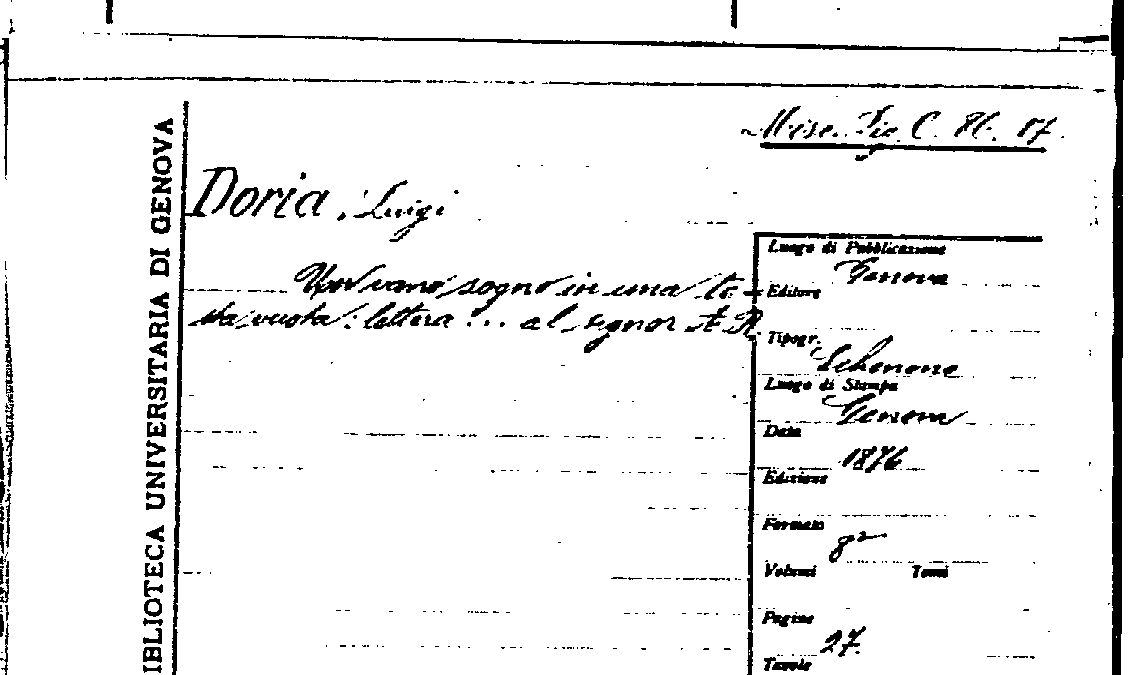 Misc. Lig. C. 86. 17.
BIBLIOTECA UNIVERSITARIA DI GENOVA
Doria, Luigi
Un vano sogno in una te-
sta vuota: lettera ... al signor A. R.
Luogo di Pubblicazione
Genova
Editore
Tipogr.
Schenone
Luogo di Stampa
Genova
Data
1876
Edizione
Formato
8°
Volumi Tomi
Pagine
27.
Tavole